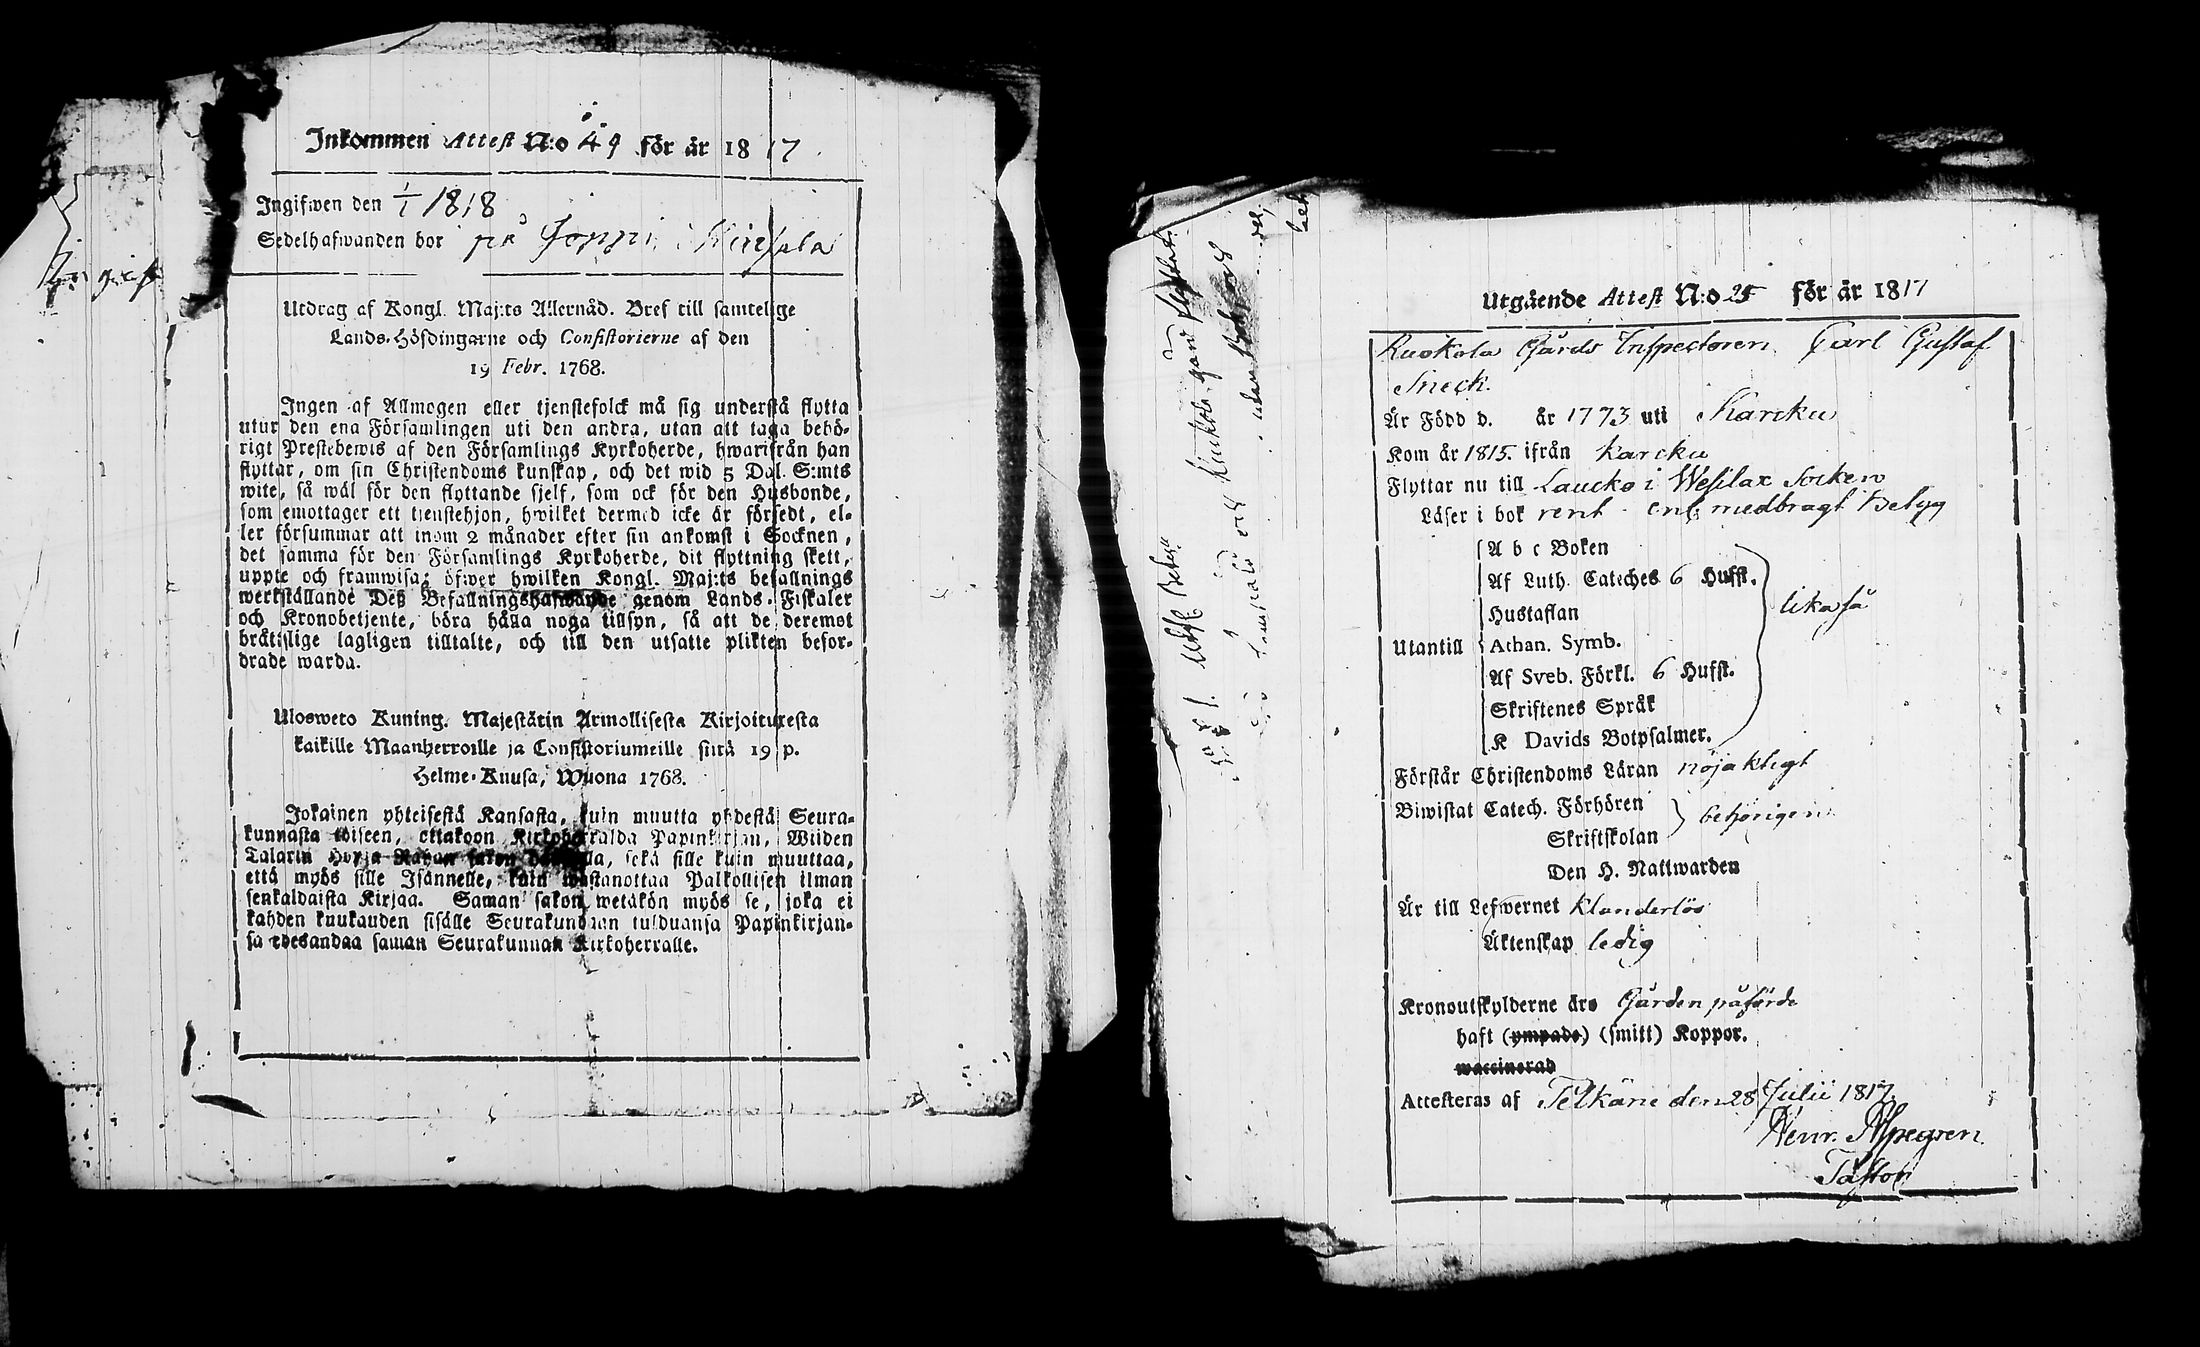 Inkommen Attest N:o 49 för år 1817.
Ingifwen den 1/1 1818
Sedelhafwanden bor på Joppi i
Utdrag af Kongl. Maj:ts Allernåd. Bref till samtelige
Lands-Höfdingarne och Consistorierne af den
19 Febr. 1768.
Ingen af Allmogen eller tjenstefolck må sig understå flytta
utur den ena Församlingen uti den andra, utan att taga behö-
rigt Prestebewis af den Församlings Kyrkoherde, hwarifrån han
flyttar, om sin Christendoms kunskap, och det wid 5 Dal. S:mts
wite, så wäl för den flyttande sjelf, som ock för den Husbonde,
som emottager ett tjenstehjon, hwilket dermed icke är försedt, el-
ler försummar att inom 2 månader efter sin ankomst i Socknen,
det samma för den Församlings Kyrkoherde, dit flyttning skett,
uppte och framwisa; öfwer hwilken Kongl. Maj:ts befallnings
werkställande Deß Befallningshafwande genom Lands-Fiskaler
och Kronobetjente, böra hålla noga tillsyn, så att de deremot
bråtslige lagligen tilltalte, och till den utsatte plikten befor-
drade warda.
Ulosweto Kuning. Majestätin Armollisesta Kirjoituxesta
kaikille Maanherroille ja Consistoriumeille siitä 19 p.
Helme-Kuusa, Wuona 1768.
Jokainen yhteisestä Kansasta, kuin muutta yhdestä Seura-
kunnasta toiseen, ottakoon Kirkoherralda Papinkirjan, Wiiden
Talarin Hopja Rahan sakon, sekä sille kuin muuttaa,
että myös sille Isännelle, kuin wastanottaa Palkollisen ilman
senkaldaista Kirjaa. Saman sakon wetäkön myös se, joka ei
kahden kuukauden sisälle Seurakundaan tulduansa Papinkirjan-
sa edesandaa saman Seurakunnan Kirkoherralle.
Utgående Attest N:o 25 för år 1817
Ruokola Gårds Inspectoren Carl Gustaf
Sneck.
Är Född d. år 1773 uti Karcku
Kom år 1815. ifrån Karcku
Flyttar nu till Laucko i Wesilax Socken
Läser i bok rent enl. medbragt Betyg
A b c Boken
Af Luth. Cateches 6 Hufst.
Hustaflan
Utantill Athan. Symb.
likaså
Af Sveb. Förkl. 6 Hufst.
Skriftenes Språk
K Davids Botpsalmer.
Förstår Christendoms Läran nöjaktigt
Biwistat Catech. Förhören
behörigen
Skriftskolan
Den H. Nattwarden
Är till Lefwernet klanderlös
Äktenskap ledig
Kronoutskylderne äro Gården påförde
haft (ympade) (smitt) Koppor.
waccinerad
Attesteras af Pelkäne den 28 Julii 1817.
Henr. Alpegren
Pastor